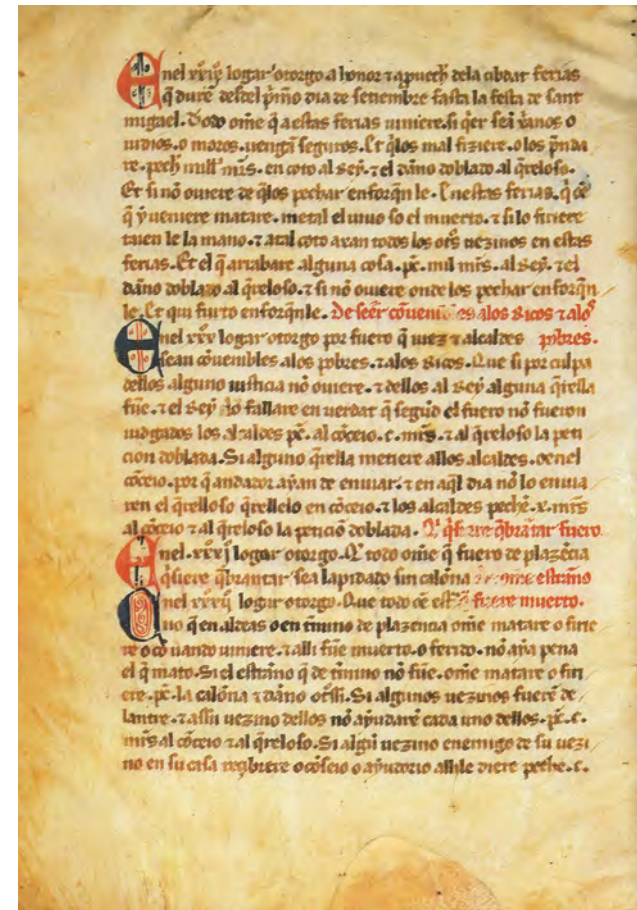 Enel xxix logar otorgo a honor ⁊ apuech dela cibdat ferias
q̃ durẽ desdel p̃mo dia de setiembre fasta la festa de sant
migael. Todo om̃e q̃ a estas ferias viniere. si q̃er seã xp̃anos o
iudios. o moros. uengã seguros. Et q̃los mal fiziere. o los p̃nda
re. pech mill m̃rs. en coto al Rey. ⁊ el dãno doblado al q̃reloso.
Et si nõ ouiere de q̃los pechar enforq̃n le. Enestas ferias. q̃
q̃ ỹ ueniere matare. metã el uiuo so el muerto. ⁊ si lo firiere
taien le la mano. ⁊ atal coto ayan todos los ot̃s uezinos en estas
ferias. Et el q̃ arrabare alguna cosa. pc̃. mil m̃rs. al Rey. ⁊ el
dãno doblado al q̃reloso. ⁊ si nõ ouiere onde los pechar enforq̃n
le. Et qui furto enforq̃nle. De seer cõuenibles alos Ricos ⁊ alos
Enel xxx logar otorgo por fuero q̃ iuez ⁊ alcaldes pobres.
sean cõuenibles alos pobres. ⁊ alos Ricos. Que si por culpa
dellos alguno iusticia nõ ouiere. ⁊ dellos al Rey alguna q̃rella
fũe. ⁊ el Rey lo fallare en uerdat q̃ segũd el fuero nõ fueron
iudgados los alcaldes pc̃. al cõceio. c. m̃rs. ⁊ al q̃reloso la peti
cion doblada. Si alguno q̃rella metiere allos alcaldes. o enel
cõceio. por q̃ andador ayan de enuiar. ⁊ en aq̃l dia nõ lo enuia
ren el q̃relloso q̃rellelo en cõceio. ⁊ los alcaldes pechẽ. x. m̃rs
al cõceio ⁊ al q̃reloso la peticiõ doblada. q̃brãtar fuero
Enel. xxxj logar otorgo. Q̃ todo om̃e q̃ fuero de plazẽcia
q̃siere q̃brantar sea lapidado sin calõna om̃e estrãno
Qnel xxxij logar otorgo. Que todo fuere muerto.
no q̃ en aldeas o en t̃mino de plazencia om̃e matare o firie
re o cõ uando uiniere. ⁊ alli fũe muerto. o ferido. nõ aỹa pena
el q̃ mato. Si el estrãno q̃ de t̃mino nõ fũe. om̃e matare o firi
ere. pc̃. la calõna ⁊ dãno ot̃ssi. Si algunos uezinos fuerẽ de
lantre. ⁊ assu uezino dellos nõ aỹudarẽ cada uno dellos. pc̃. c.
m̃rs al cõceio ⁊ al q̃reloso. Si algũ uezino enemigo de su uezi
no en su casa recibiere o cõseio o aỹudorio allile diere peche. c.